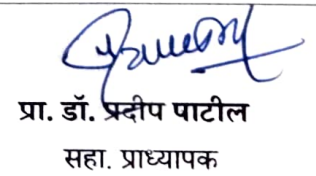 प्रा. डॉ. प्रदीप पाटील
सहा. प्राध्यापक